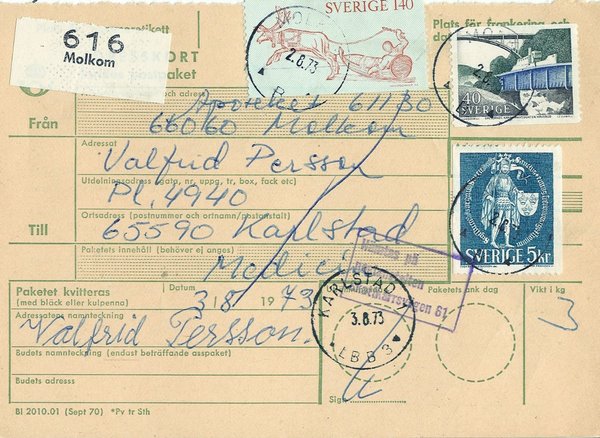 SVERIGE 140
Plats för frankering och
616
Molkom
2.8.73
40
SVERIGE
Apoteket 61130
66060 Molkom
Från
Adressat
Valfrid Persson
Utdelningsadress (gata, nr, uppg, tr, box, fack etc)
Pl. 4940
Ortsadress (postnummer och ortnamn/postanstalt)
Till
65590 Karlstad
SVERIGE 5kr
Paketets innehåll (behöver ej anges)
Medici
Paketet kvitteras
(med bläck eller kulpenna)
Datum
3/8 1973
KARLSTAD
3.8.73
LBB3
Paketets ank dag
Vikt i kg
3
Adressatens namnteckning
Valfrid Persson.
Budets namnteckning (endast beträffande asspaket)
Budets adress
Sign
BI 2010.01 (Sept 70) *Pv tr Sth